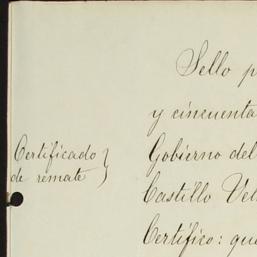 Sello p
y cincuenta
Certificado
de remate
Gobierno del
Castillo Vel
Certifico: que